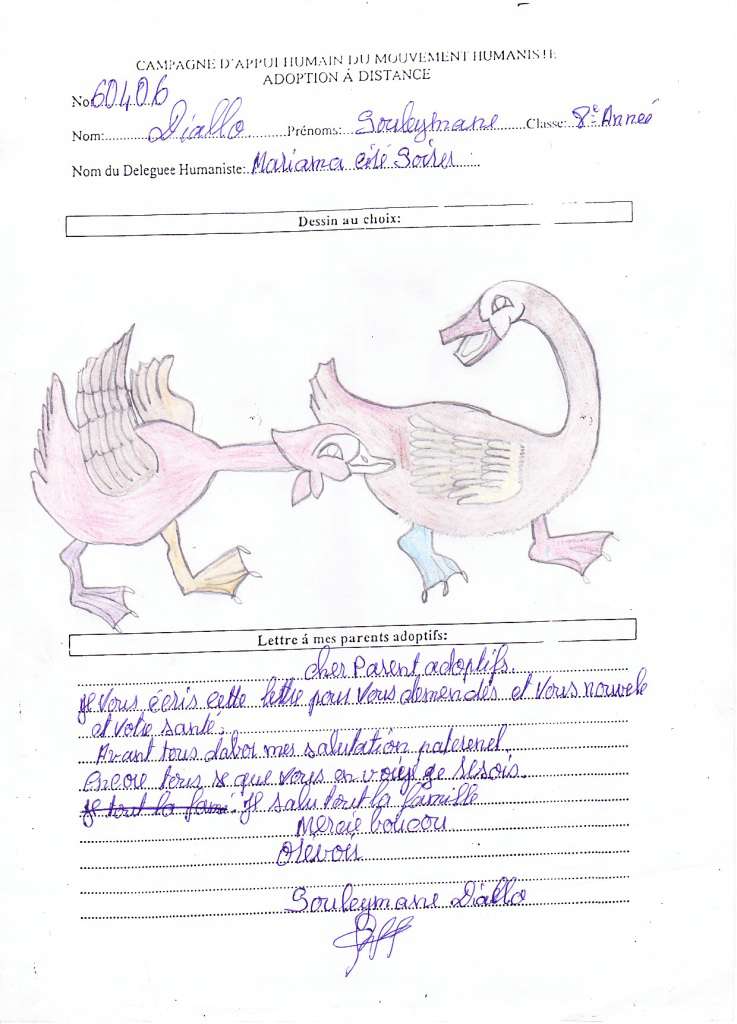 CAMPAGNE D'APPUI HUMAIN DU MOUVEMENT HUMANISTE
ADOPTION À DISTANCE
No 60406
Nom: Diallo Prénoms: Souleymane Classe: 8e Année
Nom du Deleguee Humaniste: Mariama Ciré
Dessin au choix:
Lettre á mes parents adoptifs:
cher Parent adoptifs.
Je vous écris cette lettre pour vous demendés et vous nouvele
et votre santé.
Avant tous dabor mes salutation paterenel.
Encore tous se que vous en voiyé ge resois.
Je tout la fami. Je salu tout la famille
Mercie boucou
Orevoir
Souleymane Diallo